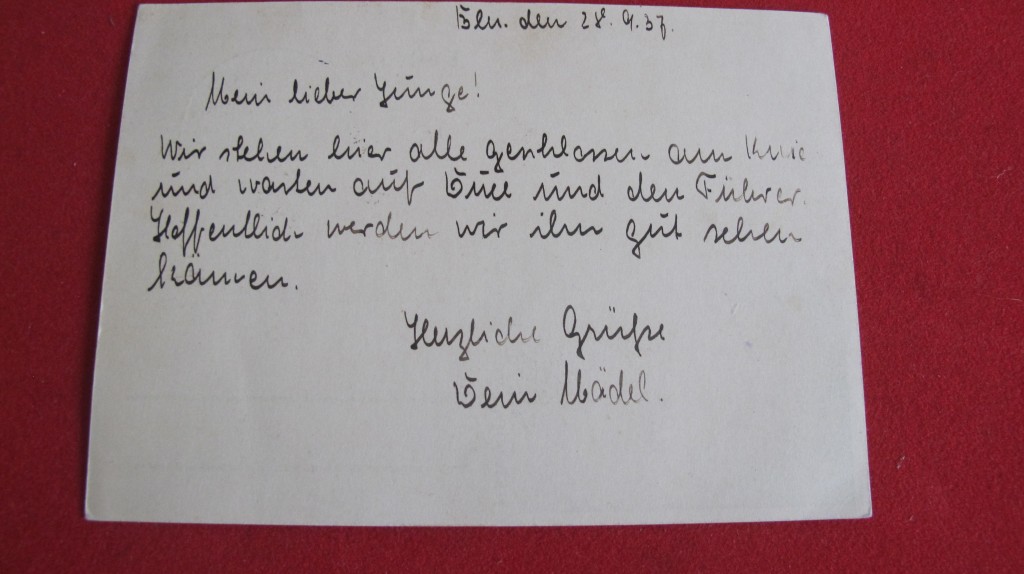 Bln. den 28.9.37.
Mein lieber Junge!
Wir stehen hier alle geschlossen am Knie
und warten auf Duce und den Führer.
Hoffentlich werden wir ihn gut sehen
können.
Herzliche Grüße
Dein Mädel.